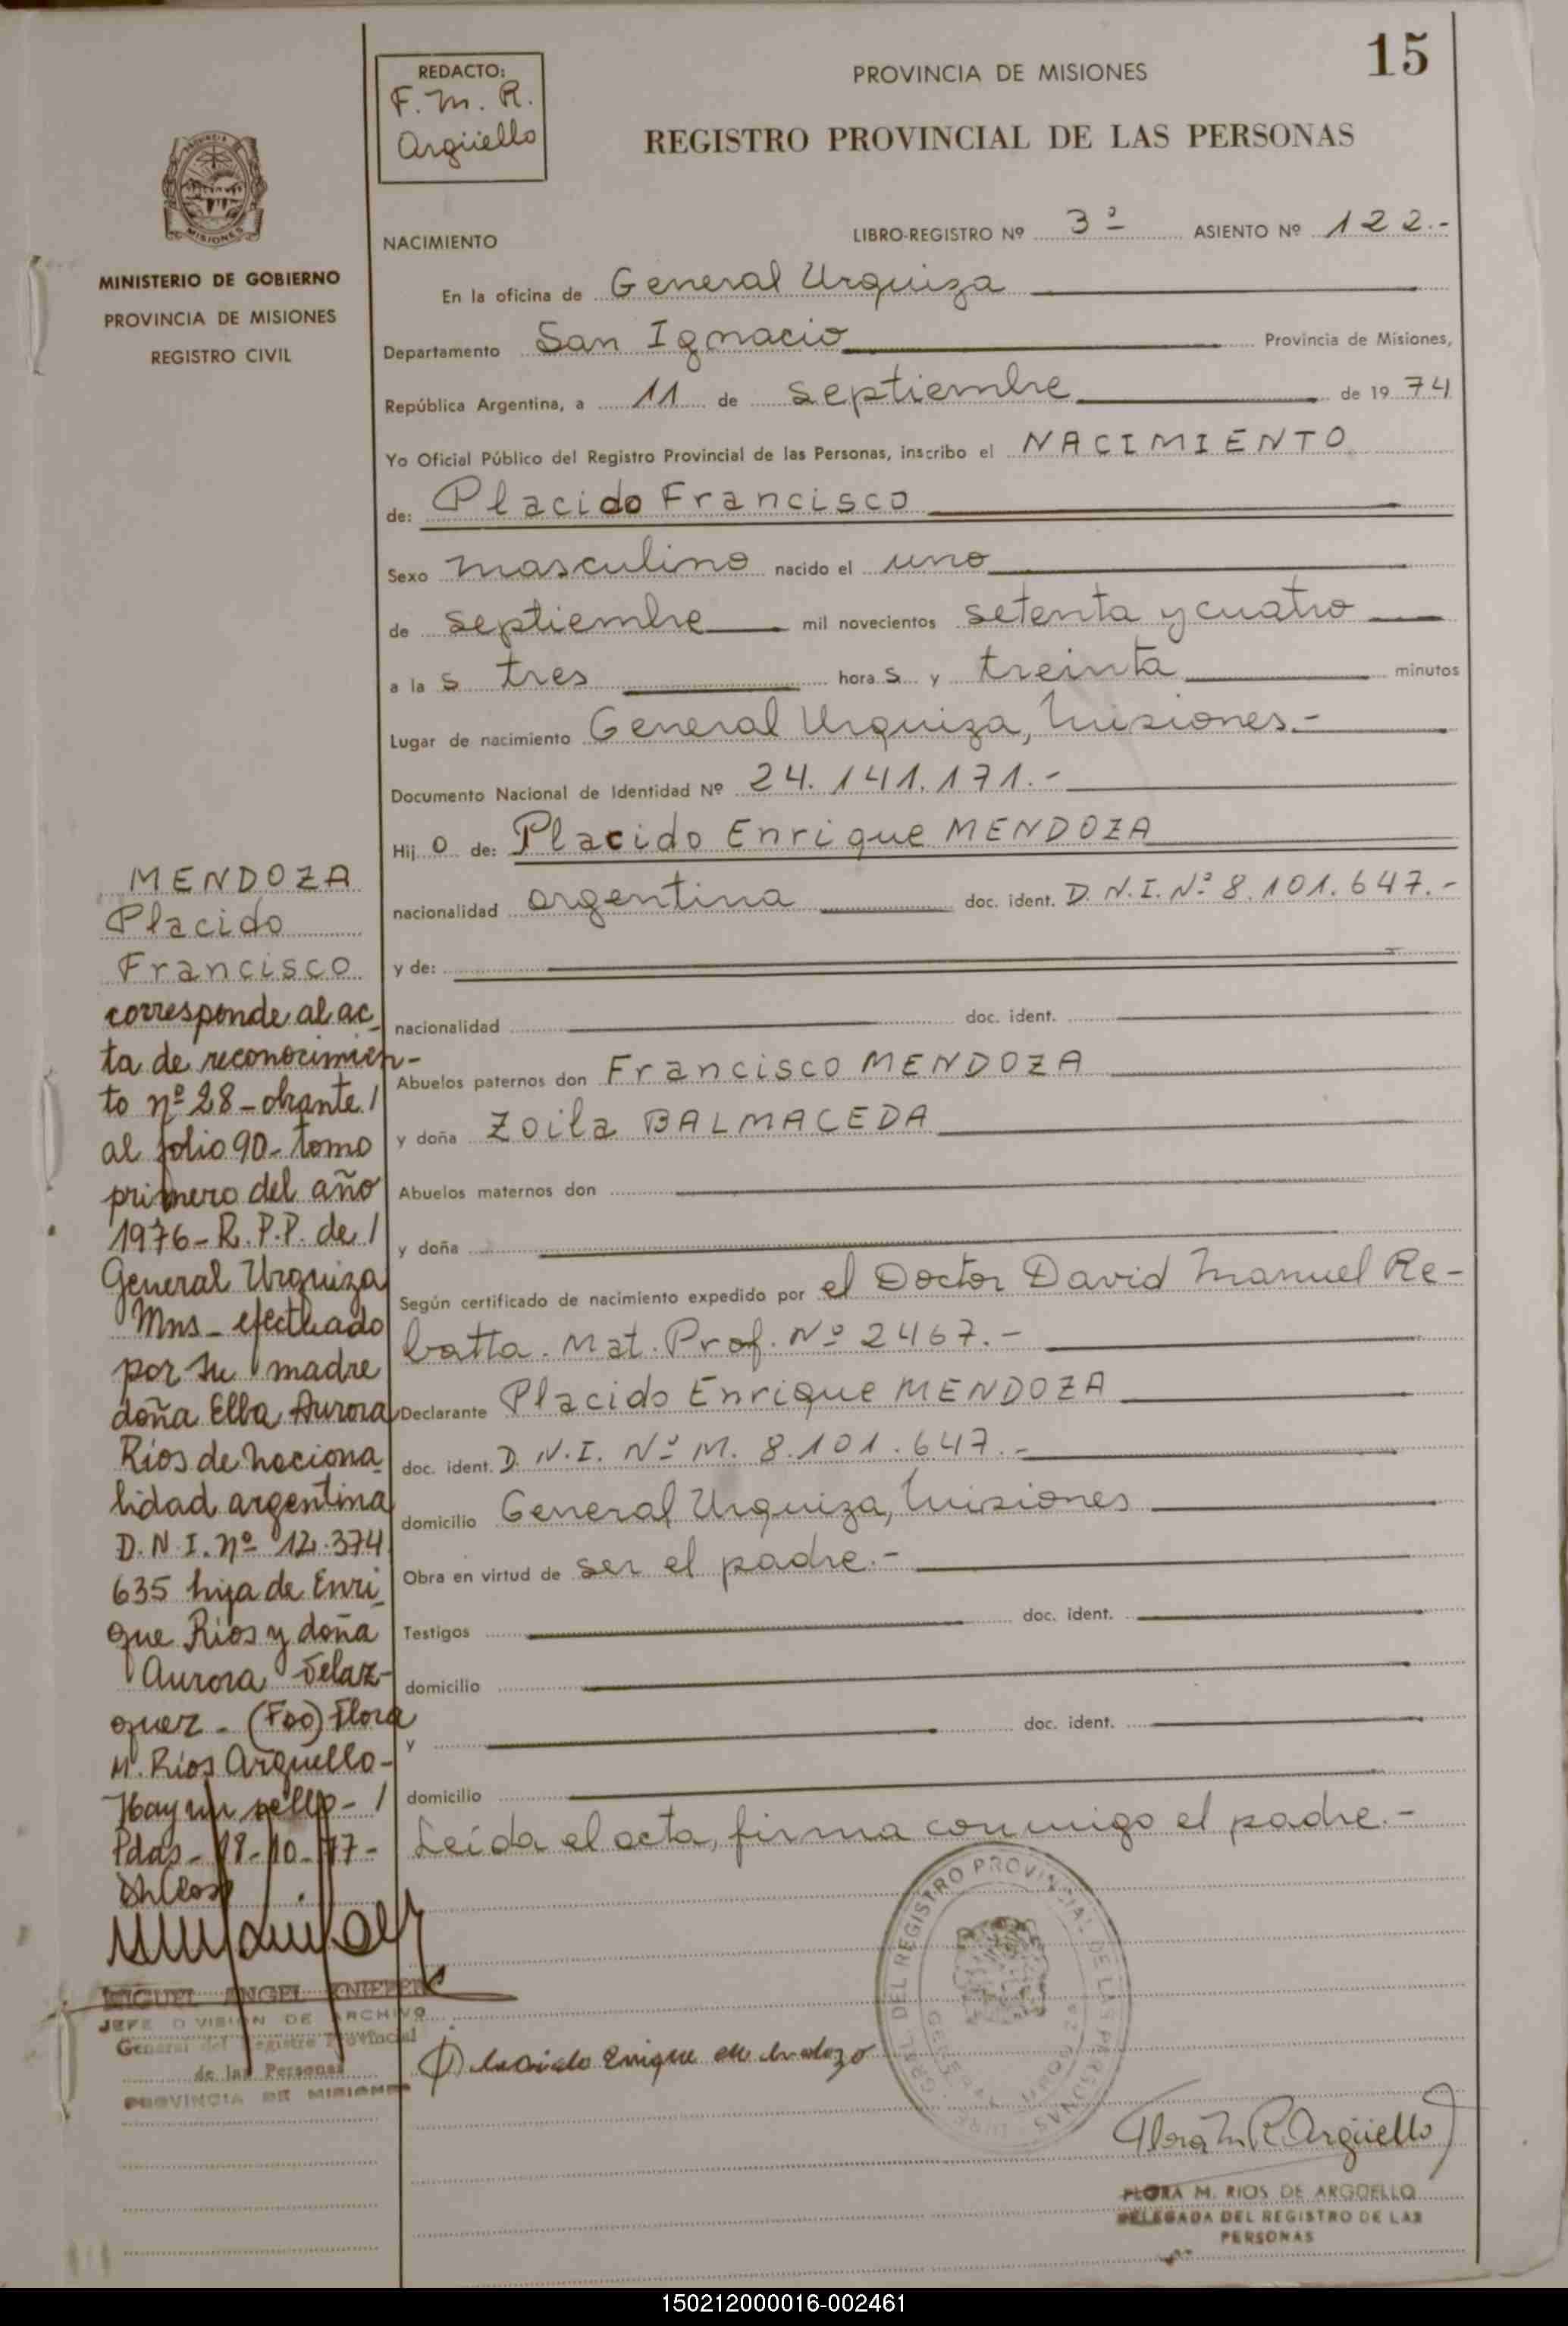 15
REDACTO:
F. M. R.
Argüello
PROVINCIA DE MISIONES
REGISTRO PROVINCIAL DE LAS PERSONAS
MISIONES
MINISTERIO DE GOBIERNO
PROVINCIA DE MISIONES
REGISTRO CIVIL
NACIMIENTO
LIBRO-REGISTRO Nº 3º ASIENTO Nº 122.-
En la oficina de General Urquiza
Departamento San Ignacio Provincia de Misiones,
República Argentina, a 11 de septiembre de 1974
Yo Oficial Público del Registro Provincial de las Personas, inscribo el NACIMIENTO
de: Placido Francisco
Sexo masculino nacido el uno
de septiembre mil novecientos setenta y cuatro
a las tres horas y treinta minutos
Lugar de nacimiento General Urquiza, Misiones.-
Documento Nacional de Identidad Nº 24.141.171.-
Hijo de: Placido Enrique MENDOZA
nacionalidad argentina doc. ident. D.N.I.Nº 8.101.647.-
y de:
nacionalidad doc. ident.
Abuelos paternos don Francisco MENDOZA
y doña Zoila BALMACEDA
Abuelos maternos don
y doña
Según certificado de nacimiento expedido por el Doctor David Manuel Re-
batta. Mat. Prof. Nº 2467.-
Declarante Placido Enrique MENDOZA
doc. ident. D.N.I. Nº M. 8.101.647.-
domicilio General Urquiza, Misiones
Obra en virtud de ser el padre.-
Testigos doc. ident.
domicilio
y doc. ident.
domicilio
Leída el acta, firma conmigo el padre.-
MENDOZA
Placido
Francisco
corresponde al ac_
ta de reconocimien-
to nº 28 - obrante /
al folio 90 - tomo
primero del año
1976 - R.P.P. de /
General Urquiza
Mns - efectuado
por su madre
doña Elba Aurora
Rios de naciona_
lidad argentina
D.N.I. nº 12.374
635 hija de Enri_
que Rios y doña
Aurora Velaz-
quez - (Fdo) Flora
M. Rios Arguello -
Hay un sello - /
Pdas - 18-10-77 -
MIGUEL ANGEL
JEFE DIVISION DE ARCHIVO
General del Registro Provincial
de las Personas
PROVINCIA DE MISIONES
Placido Enrique Mendoza
DEL REGISTRO PROVINCIAL DE LAS PERSONAS
Flora M R Argüello
FLORA M. RIOS DE ARGÜELLO
DELEGADA DEL REGISTRO DE LAS
PERSONAS
150212000016-002461